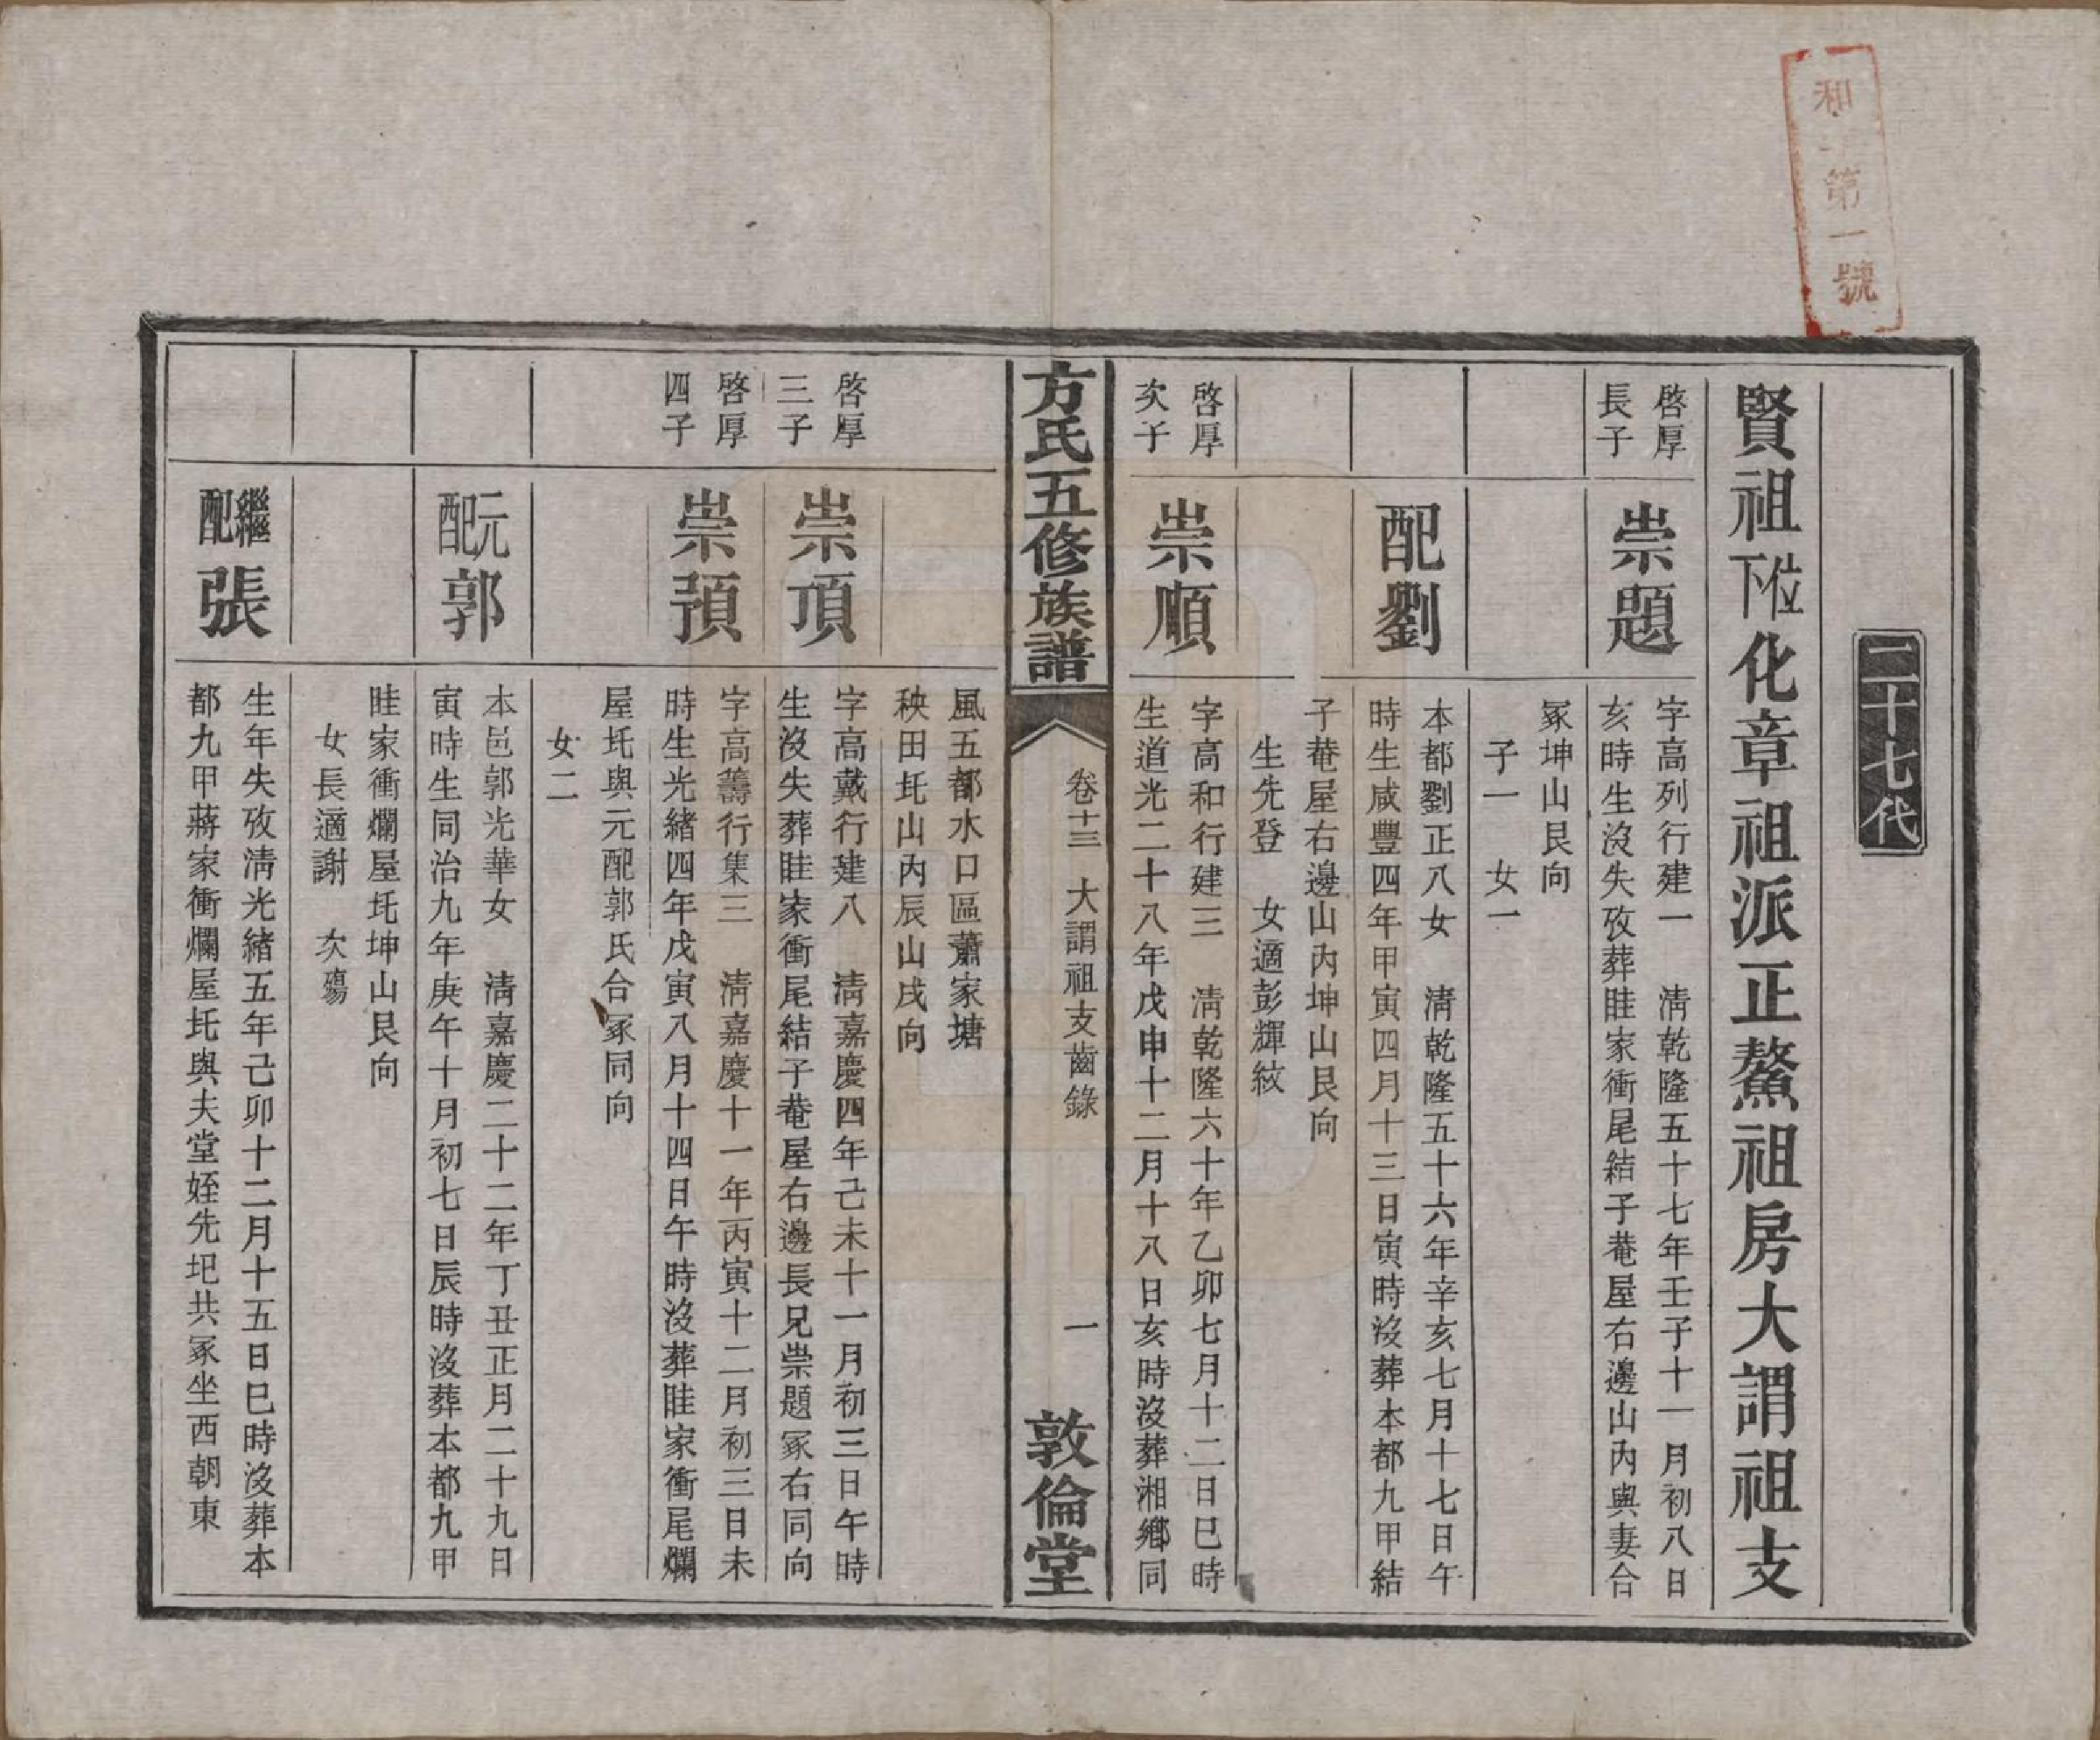 和 第一號
二十七代
賢祖位下化章祖派正鰲祖房大謂祖支
啓厚
長子
崇題
字高列行建一 淸乾隆五十七年壬子十一月初八日
亥時生沒失攷葬畦家衝尾結子菴屋右邊山內與妻合
冢坤山艮向
子一 女一
配劉
本都劉正八女 淸乾隆五十六年辛亥七月十七日午
時生咸豐四年甲寅四月十三日寅時沒葬本都九甲結
子菴屋右邊山內坤山艮向
生先登 女適彭輝紋
啓厚
次子
崇順
字高和行建三 淸乾隆六十年乙卯七月十二日巳時
生道光二十八年戊申十二月十八日亥時沒葬湘鄕同
方氏五修族譜
卷十三 大謂祖支齒錄
一
敦倫堂
風五都水口區蕭家塘
秧田圫山內辰山戌向
啓厚
三子
崇頂
字高戴行建八 淸嘉慶四年己未十一月初三日午時
生沒失葬畦家衝尾結子菴屋右邊長兄崇題冢右同向
啓厚
四子
崇預
字高籌行集三 淸嘉慶十一年丙寅十二月初三日未
時生光緖四年戊寅八月十四日午時沒葬畦家衝尾爛
屋圫與元配郭氏合冢同向
女二
元配郭
本邑郭光華女 淸嘉慶二十二年丁丑正月二十九日
寅時生同治九年庚午十月初七日辰時沒葬本都九甲
畦家衝爛屋圫坤山艮向
女長適謝 次殤
繼配張
生年失攷淸光緖五年己卯十二月十五日巳時沒葬本
都九甲蔣家衝爛屋圫與夫堂姪先圯共冢坐西朝東